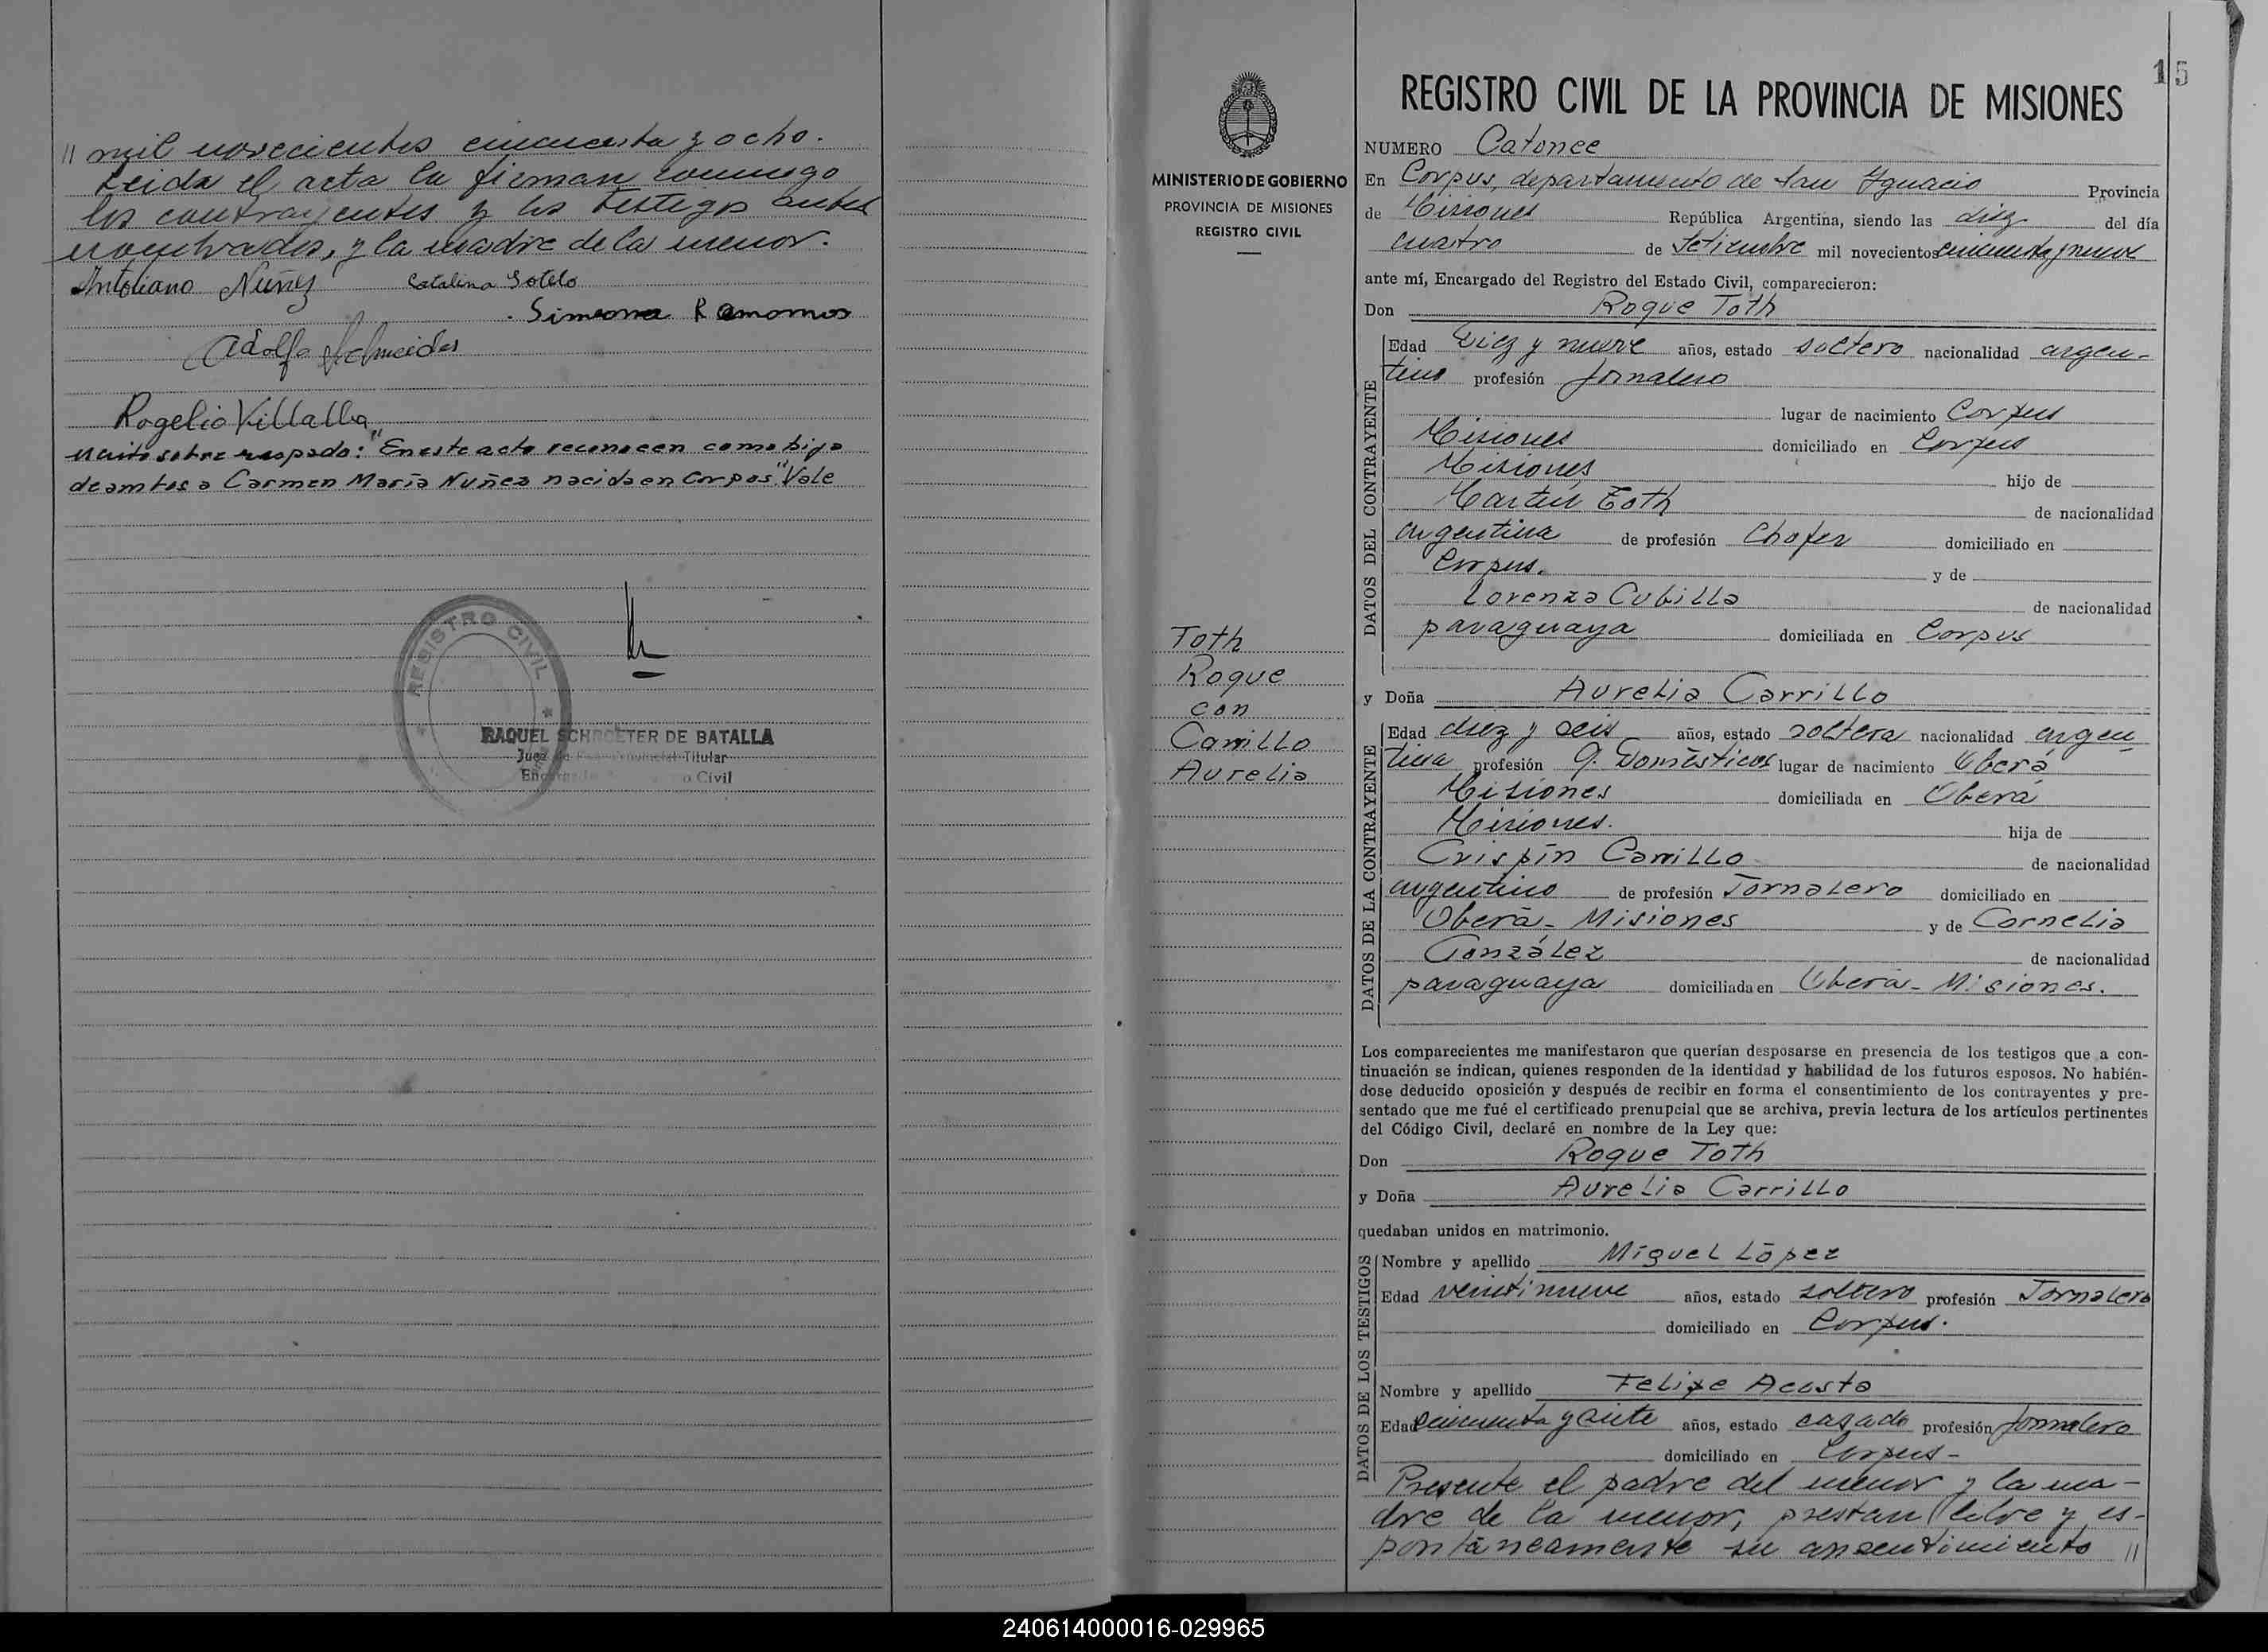 // mil novecientos cincuenta y ocho.
Leida el acta la firman conmigo
los contrayentes y los testigos antes
nombrados, y la madre de la menor.
Antoliano Nuñez Catalina Sotelo
Simeona Ramomos
Adolfo Almeida
Rogelio Villalba
Escrito sobre raspado: "En este acto reconocen como hija
de ambos a Carmen María Nuñez nacida en Corpus." Vale
REGISTRO CIVIL
RAQUEL SCHROETER DE BATALLA
Juez de Paz Provincial Titular
Civil
15
MINISTERIO DE GOBIERNO
PROVINCIA DE MISIONES
REGISTRO CIVIL
Toth
Roque
con
Carrillo
Aurelia
REGISTRO CIVIL DE LA PROVINCIA DE MISIONES
NUMERO Catonce
En Corpus, departamento de San Ygnacio Provincia
de Misiones República Argentina, siendo las diez del día
cuatro de Setiembre mil novecientos cincuenta y nueve
ante mí, Encargado del Registro del Estado Civil, comparecieron:
Don Roque Toth
DATOS DEL CONTRAYENTE
Edad Diez y nueve años, estado soltero nacionalidad argen-
tino profesión Jornalero
lugar de nacimiento Corpus
Misiones domiciliado en Corpus
Misiones hijo de
Martín Toth de nacionalidad
argentina de profesión Chofer domiciliado en
Corpus. y de
Lorenza Cubilla de nacionalidad
paraguaya domiciliada en Corpus
y Doña Aurelia Carrillo
DATOS DE LA CONTRAYENTE
Edad diez y seis años, estado soltera nacionalidad argen
tina profesión Q. Domésticos lugar de nacimiento Oberá
Misiones domiciliada en Oberá
Misiones. hija de
Crispín Carrillo de nacionalidad
argentino de profesión Jornalero domiciliado en
Oberá - Misiones y de Cornelia
González de nacionalidad
paraguaya domiciliada en Oberá - Misiones.
Los comparecientes me manifestaron que querían desposarse en presencia de los testigos que a con-
tinuación se indican, quienes responden de la identidad y habilidad de los futuros esposos. No habién-
dose deducido oposición y después de recibir en forma el consentimiento de los contrayentes y pre-
sentado que me fué el certificado prenupcial que se archiva, previa lectura de los artículos pertinentes
del Código Civil, declaré en nombre de la Ley que:
Don Roque Toth
y Doña Aurelia Carrillo
quedaban unidos en matrimonio.
DATOS DE LOS TESTIGOS
Nombre y apellido Miguel López
Edad veintinueve años, estado soltero profesión Jornalero
domiciliado en Corpus.
Nombre y apellido Felipe Acosta
Edad cincuenta y siete años, estado casado profesión Jornalero
domiciliado en Corpus -
Presente el padre del menor y la ma-
dre de la menor, prestan libre y es-
pontáneamente su consentimiento //
240614000016-029965